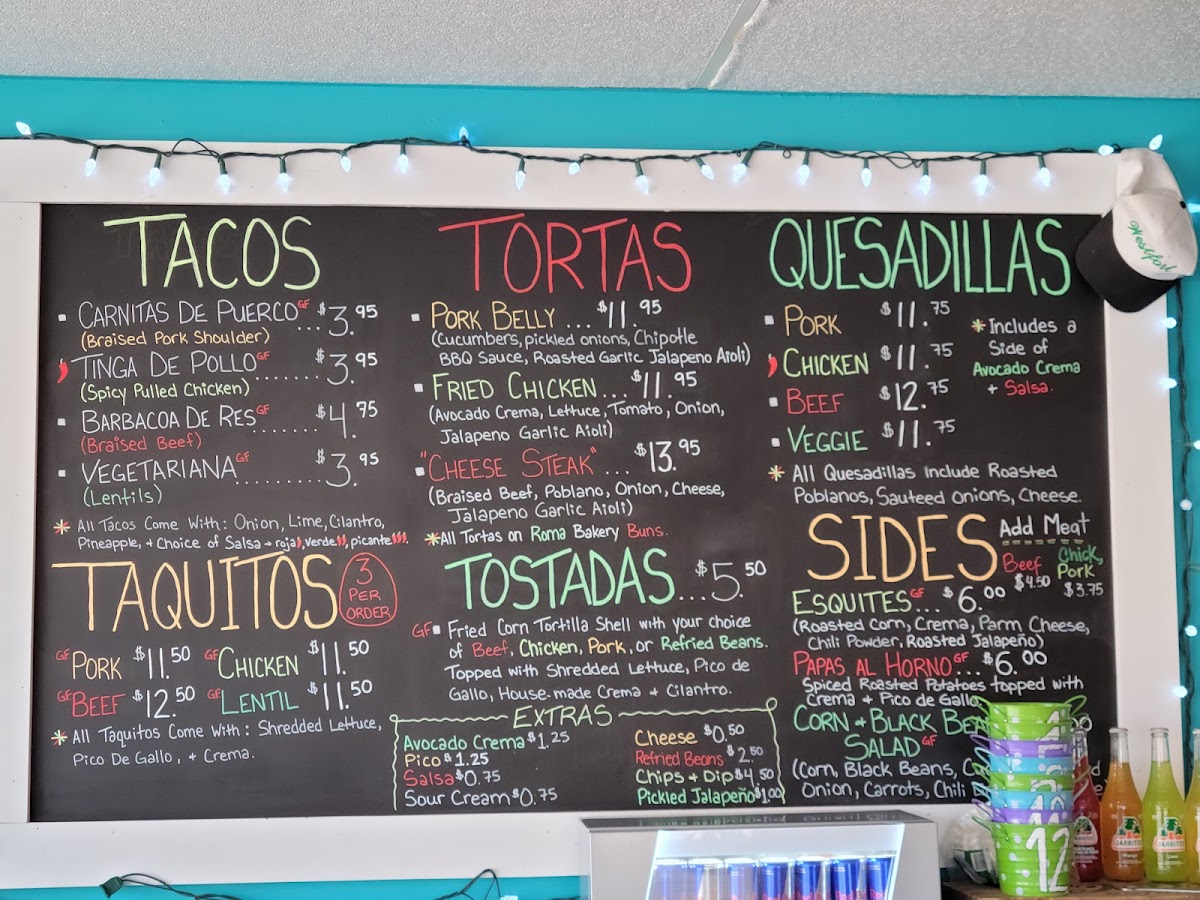 TACOS
CARNITAS DE PUERCO GF ... $3.95
(Braised Pork Shoulder)
TINGA DE POLLO GF ....... $3.95
(Spicy Pulled Chicken)
BARBACOA DE RES GF ....... $4.75
(Braised Beef)
VEGETARIANA GF ......... $3.95
(Lentils)
* All Tacos Come With: Onion, Lime, Cilantro,
Pineapple, + Choice of Salsa → roja, verde, picante
TAQUITOS
3
PER
ORDER
GF PORK $11.50 GF CHICKEN $11.50
GF BEEF $12.50 GF LENTIL $11.50
* All Taquitos Come With: Shredded Lettuce,
Pico De Gallo, + Crema.
TORTAS
PORK BELLY ... $11.95
(Cucumbers, pickled onions, Chipotle
BBQ Sauce, Roasted Garlic Jalapeno Aioli)
FRIED CHICKEN... $11.95
(Avocado Crema, Lettuce, Tomato, Onion,
Jalapeno Garlic Aioli)
"CHEESE STEAK" ... $13.95
(Braised Beef, Poblano, Onion, Cheese,
Jalapeno Garlic Aioli)
* All Tortas on Roma Bakery Buns.
TOSTADAS ... $5.50
GF Fried Corn Tortilla Shell with your choice
of Beef, Chicken, Pork, or Refried Beans.
Topped with Shredded Lettuce, Pico de
Gallo, House-made Crema + Cilantro.
EXTRAS
Avocado Crema $1.25
Pico $1.25
Salsa $0.75
Sour Cream $0.75
Cheese $0.50
Refried Beans $2.50
Chips + Dip $4.50
Pickled Jalapeño $1.00
QUESADILLAS
PORK $11.75
CHICKEN $11.75
BEEF $12.75
VEGGIE $11.75
* Includes a
Side of
Avocado Crema
+ Salsa.
* All Quesadillas Include Roasted
Poblanos, Sauteed Onions, Cheese.
SIDES
Add Meat
Beef $4.50
Chick, Pork $3.75
ESQUITES GF ... $6.00
(Roasted Corn, Crema, Parm Cheese,
Chili Powder, Roasted Jalapeño)
PAPAS AL HORNO GF ... $6.00
Spiced Roasted Potatoes topped with
Crema + Pico de Gallo
CORN + BLACK
SALAD GF
(Corn, Black Beans,
Onion, Carrots, Chili
12
JARRITOS
JARRITOS